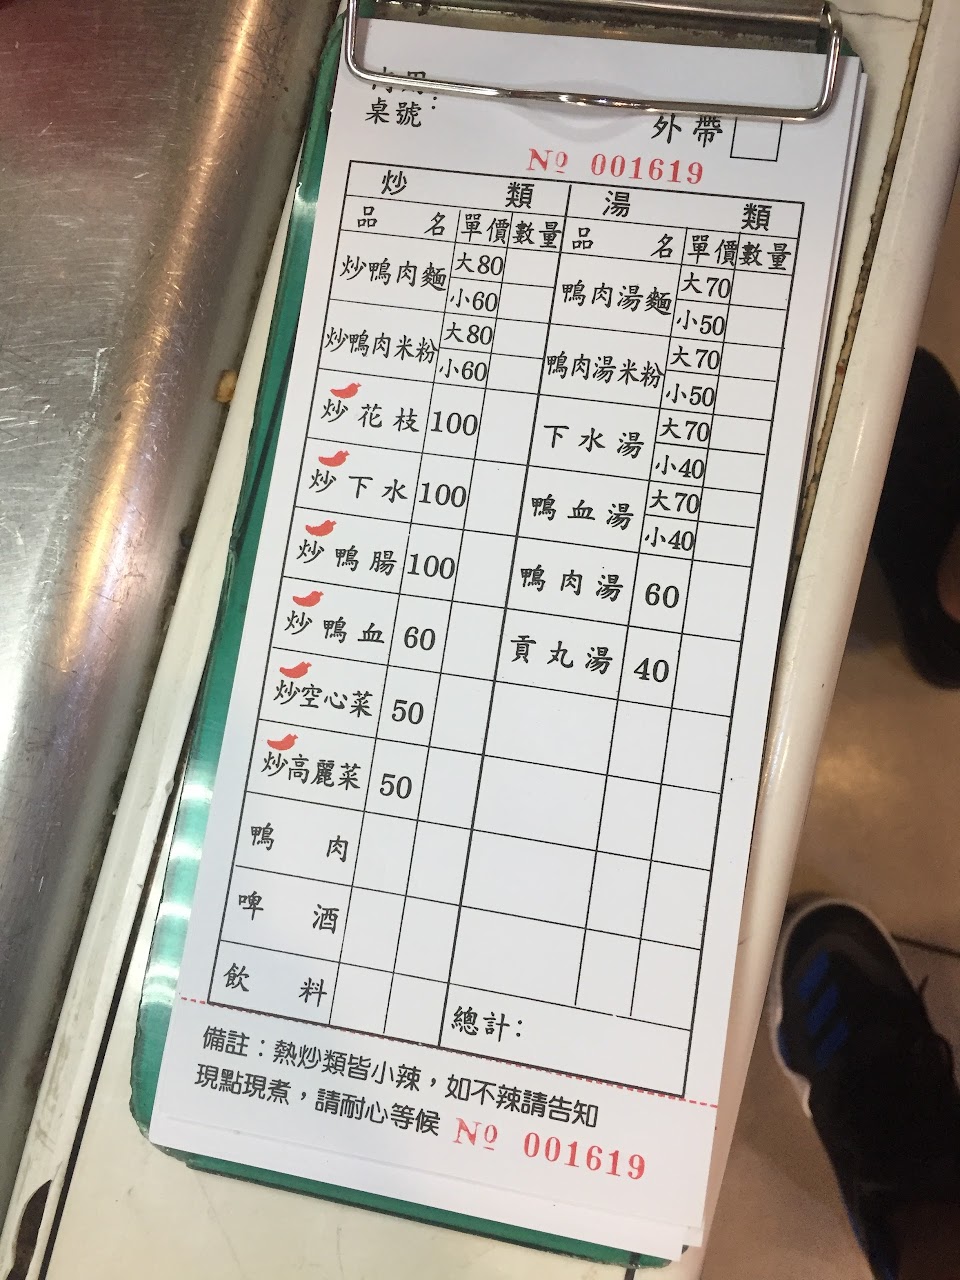 桌號：
外帶
Nº 001619
炒類 湯類
品名 單價 數量 品名 單價 數量
炒鴨肉麵 大80 鴨肉湯麵 大70
小60 小50
炒鴨肉米粉 大80 鴨肉湯米粉 大70
小60 小50
炒花枝 100 下水湯 大70
小40
炒下水 100 鴨血湯 大70
小40
炒鴨腸 100 鴨肉湯 60
炒鴨血 60 貢丸湯 40
炒空心菜 50
炒高麗菜 50
鴨肉
啤酒
飲料
總計：
備註：熱炒類皆小辣，如不辣請告知
現點現煮，請耐心等候
Nº 001619